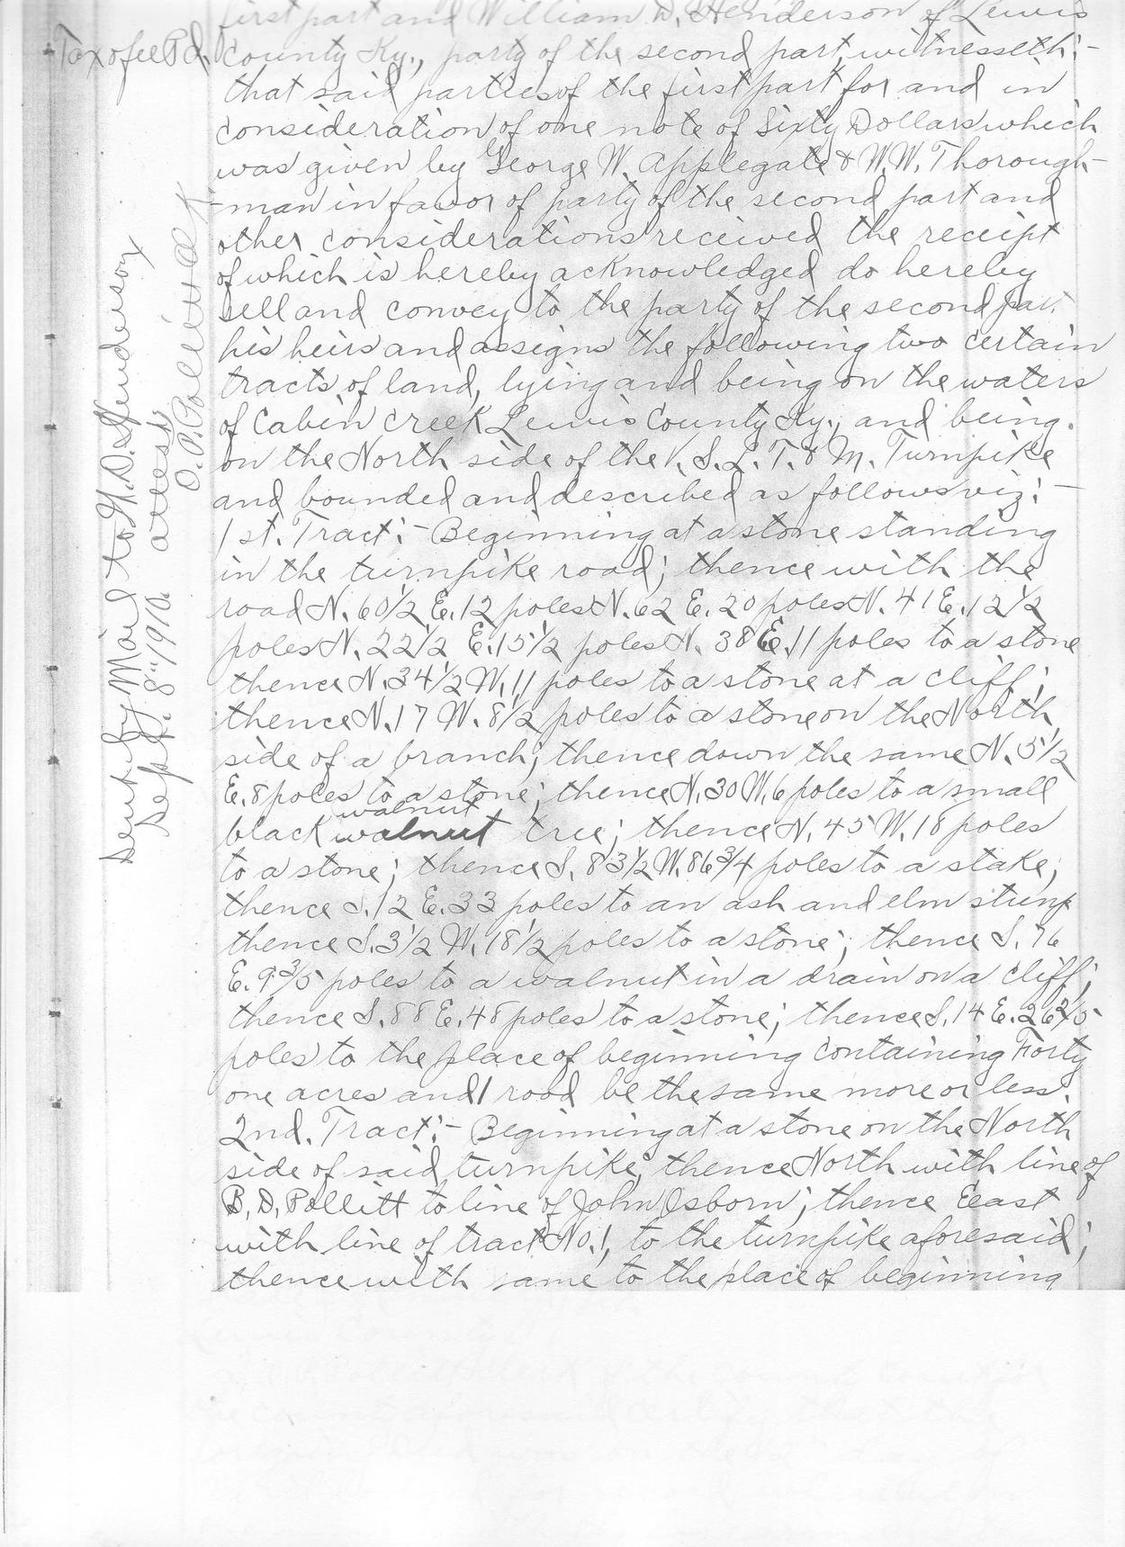 first part and William D. Henderson of Lewis
Tax & fee Pd. County Ky., party of the second part, witnesseth:-
that said parties of the first part for and in
consideration of one note of Sixty Dollars which
was given by George W. Applegate & W.W. Thorough-
man in favor of party of the second part and
other considerations received the receipt
of which is hereby acknowledged do hereby
sell and convey to the party of the second part
his heirs and assigns the following two certain
tracts of land, lying and being on the waters
of Cabin Creek Lewis County Ky., and being
on the North side of the V. S. L. T. & M. Turnpike
and bounded and described as follows viz:-
1st. Tract:- Beginning at a stone standing
in the turnpike road; thence with the
road N. 60 1/2 E. 12 poles N. 62 E. 20 poles N. 41 E. 12 1/2
poles N. 22 1/2 E. 15 1/2 poles N. 38 E. 11 poles to a stone
thence N. 34 1/2 W. 11 poles to a stone at a cliff;
thence N. 17 W. 8 1/2 poles to a stone on the North
side of a branch; thence down the same N. 5 1/2
E. 8 poles to a stone; thence N. 30 W. 6 poles to a small
walnut
black walnut tree; thence N. 45 W. 18 poles
to a stone; thence S. 83 1/2 W. 86 3/4 poles to a stake;
thence S. 12 E. 33 poles to an ash and elm stump
thence S. 3 1/2 W. 18 1/2 poles to a stone; thence S. 76
E. 9 3/5 poles to a walnut in a drain on a cliff;
thence S. 88 E. 48 poles to a stone; thence S. 14 E. 26 2/5
poles to the place of beginning containing Forty
one acres and 1 rood be the same more or less.
2nd. Tract:- Beginning at a stone on the North
side of said turnpike; thence North with line of
B. D. Pollitt to line of John Osborn; thence Eeast
with line of tract No. 1, to the turnpike aforesaid;
thence with same to the place of beginning
Sent by Mail to W. D. Henderson
Sept. 8" 1910. attest
O. P. Pollitt Clk